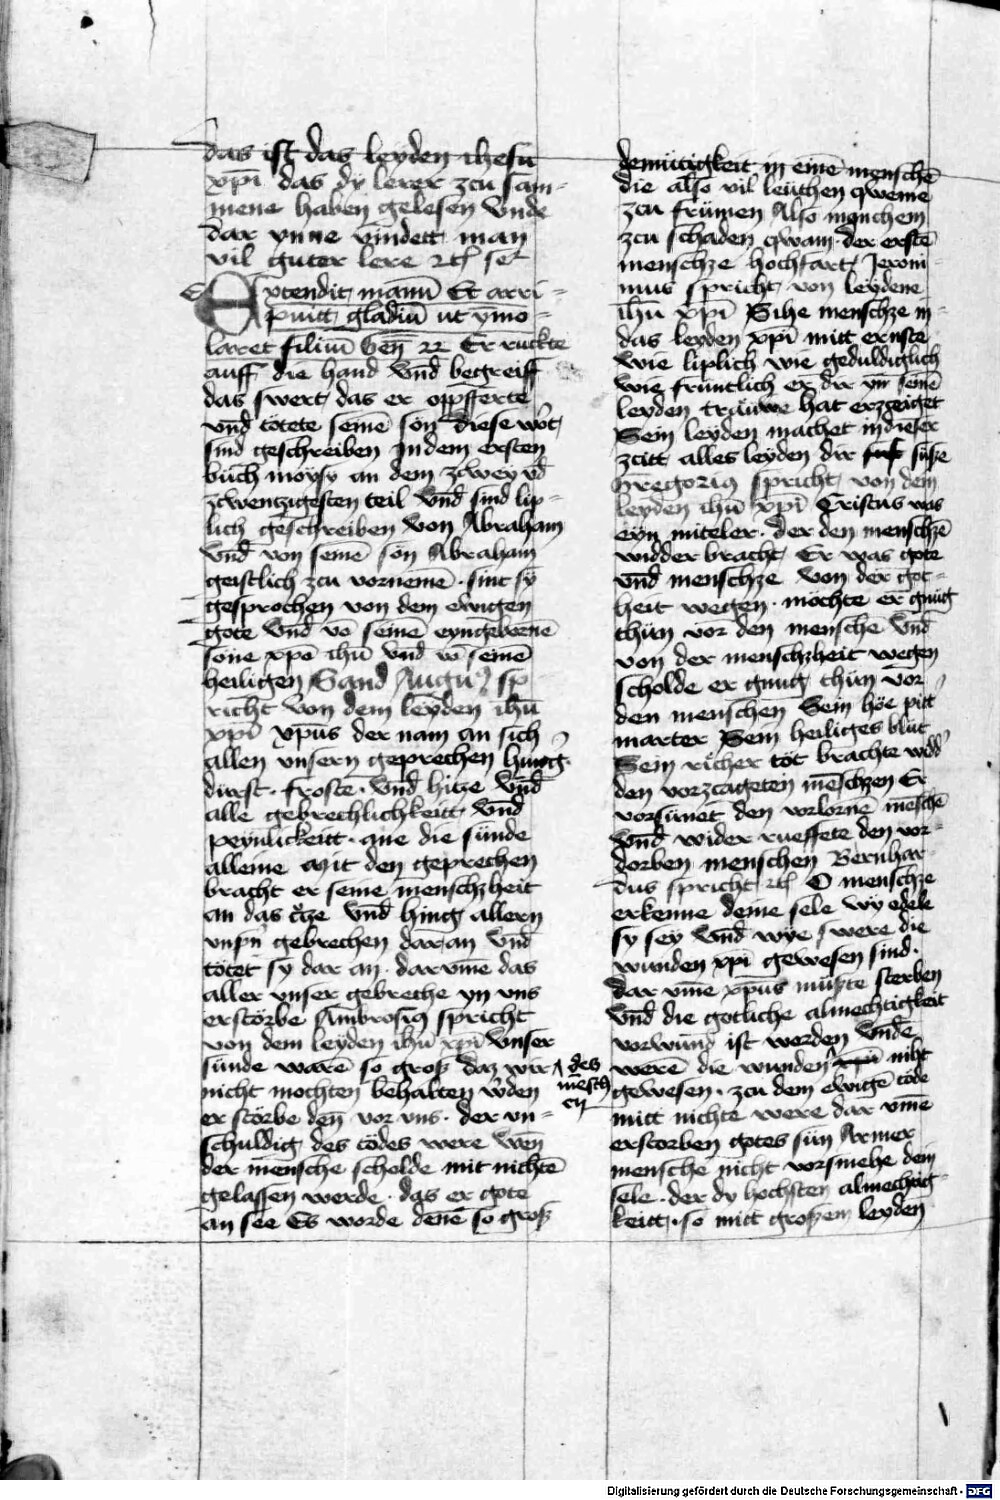 das ist das leyden ihesu
xp̄i das dy lerer zcu sam-
mene haben gelesen Vnde
dar ynne vindett man
vil guter lere
Extendit manū Et arri-
puitt gladiū ut ymo-
laret filiū Geñ 22 Er ruckte
auff die hand vnd begreiff
das swert das er oppfferte
vnd tötete seinē son diese wort
sind geschreiben Indem ersten
buch moysy an dem zcwey vn̄
zcwenczigesten teil Vnd sind lip-
lich geschreiben von Abraham
vnd von seinē son Abraham
geistlich zcu vornemē · sint sy
gesprochen von dem ewigen
gote vnd vō seinē eyngebornē
sone xp̄o ihū vnd vō seinē
heiligen Sand Augu9 sp
richt von dem leyden ihū
xp̄i xp̄us der nam an sich
allen vnsern geprechen hung̾
durst · froste · vnd hitze Vnd
alle gebrechlichkeitt vnd
peynlickeitt · ane die sünde
alleine mit den geprechen
bracht er seine menschheit
an das c̾tze Vnd hing allen
vnsn̄ gebrechen dar an Vnd
tötet sy dar an · darvmē das
aller vnser gebreche yn vns
erstörbe Ambrosi9 spricht
von dem leyden ihū xp̄i vnser
sünde warē so groß daz wir
nicht mochten behalten w̾den
er störbe deñ vor vns · der vn-
schuldig des tödes were wen̄
der mensche scholde mit nichtē
gelassen werde · das er gote
an see Es worde denē so groß
des
mēsch
en
demütigkeit in einē menschē
die also vil leuthen qweme
zcu frümen Also manchem
zcu schaden qwam · der erstē
menschze hochfart Jeroni-
mus spricht von leydene
ihū xp̄i Sihe menschze in-
das leyden xp̄i mitt ernste
wie liplich wie geduldiglich
wie früntlich er dir yn seinē
leyden träuwe hat erzceiget
Sein leyden machet in dieser
zcitt alles leyden dir süsze
Gregori9 spricht von dem
leyden ihū xp̄i Cristus was
eyn miteler · der den menschē
widder bracht Er was gote
vnd menschze von der got-
heit wegen · mochte er gnug
thün vor den mensche vnd
von der menschheit wegen
scholde er gnug thün vor
den menschen Sein höe pitt
marter Sein heiliges blut
Sein richer töt brachte widd̾
den vorzcageten mēschzen Er
vorsünet den vorlornē meschē
Vnd wider rueffete den vor-
dorben menschen Bernhar-
dus spricht O menschze
erkenne deine sele wy edele
sy sey vnd wye swere die
wunden xp̄i gewesen sind ·
dar vmē xp̄us müste sterben
Vnd die gotliche almechtigkeit
vorwund ist worden Vnde
werē die wunden xp̄i niht
gewesen · zcu dem ewigē töde
mitt nichte were dar vmē
erstorben gotes sün Armer
mensche nicht vorsmehe dein
sele · der dy hochsten almechtig-
keitt · so mitt großem leyden
Digitalisierung gefördert durch die Deutsche Forschungsgemeinschaft - DFG